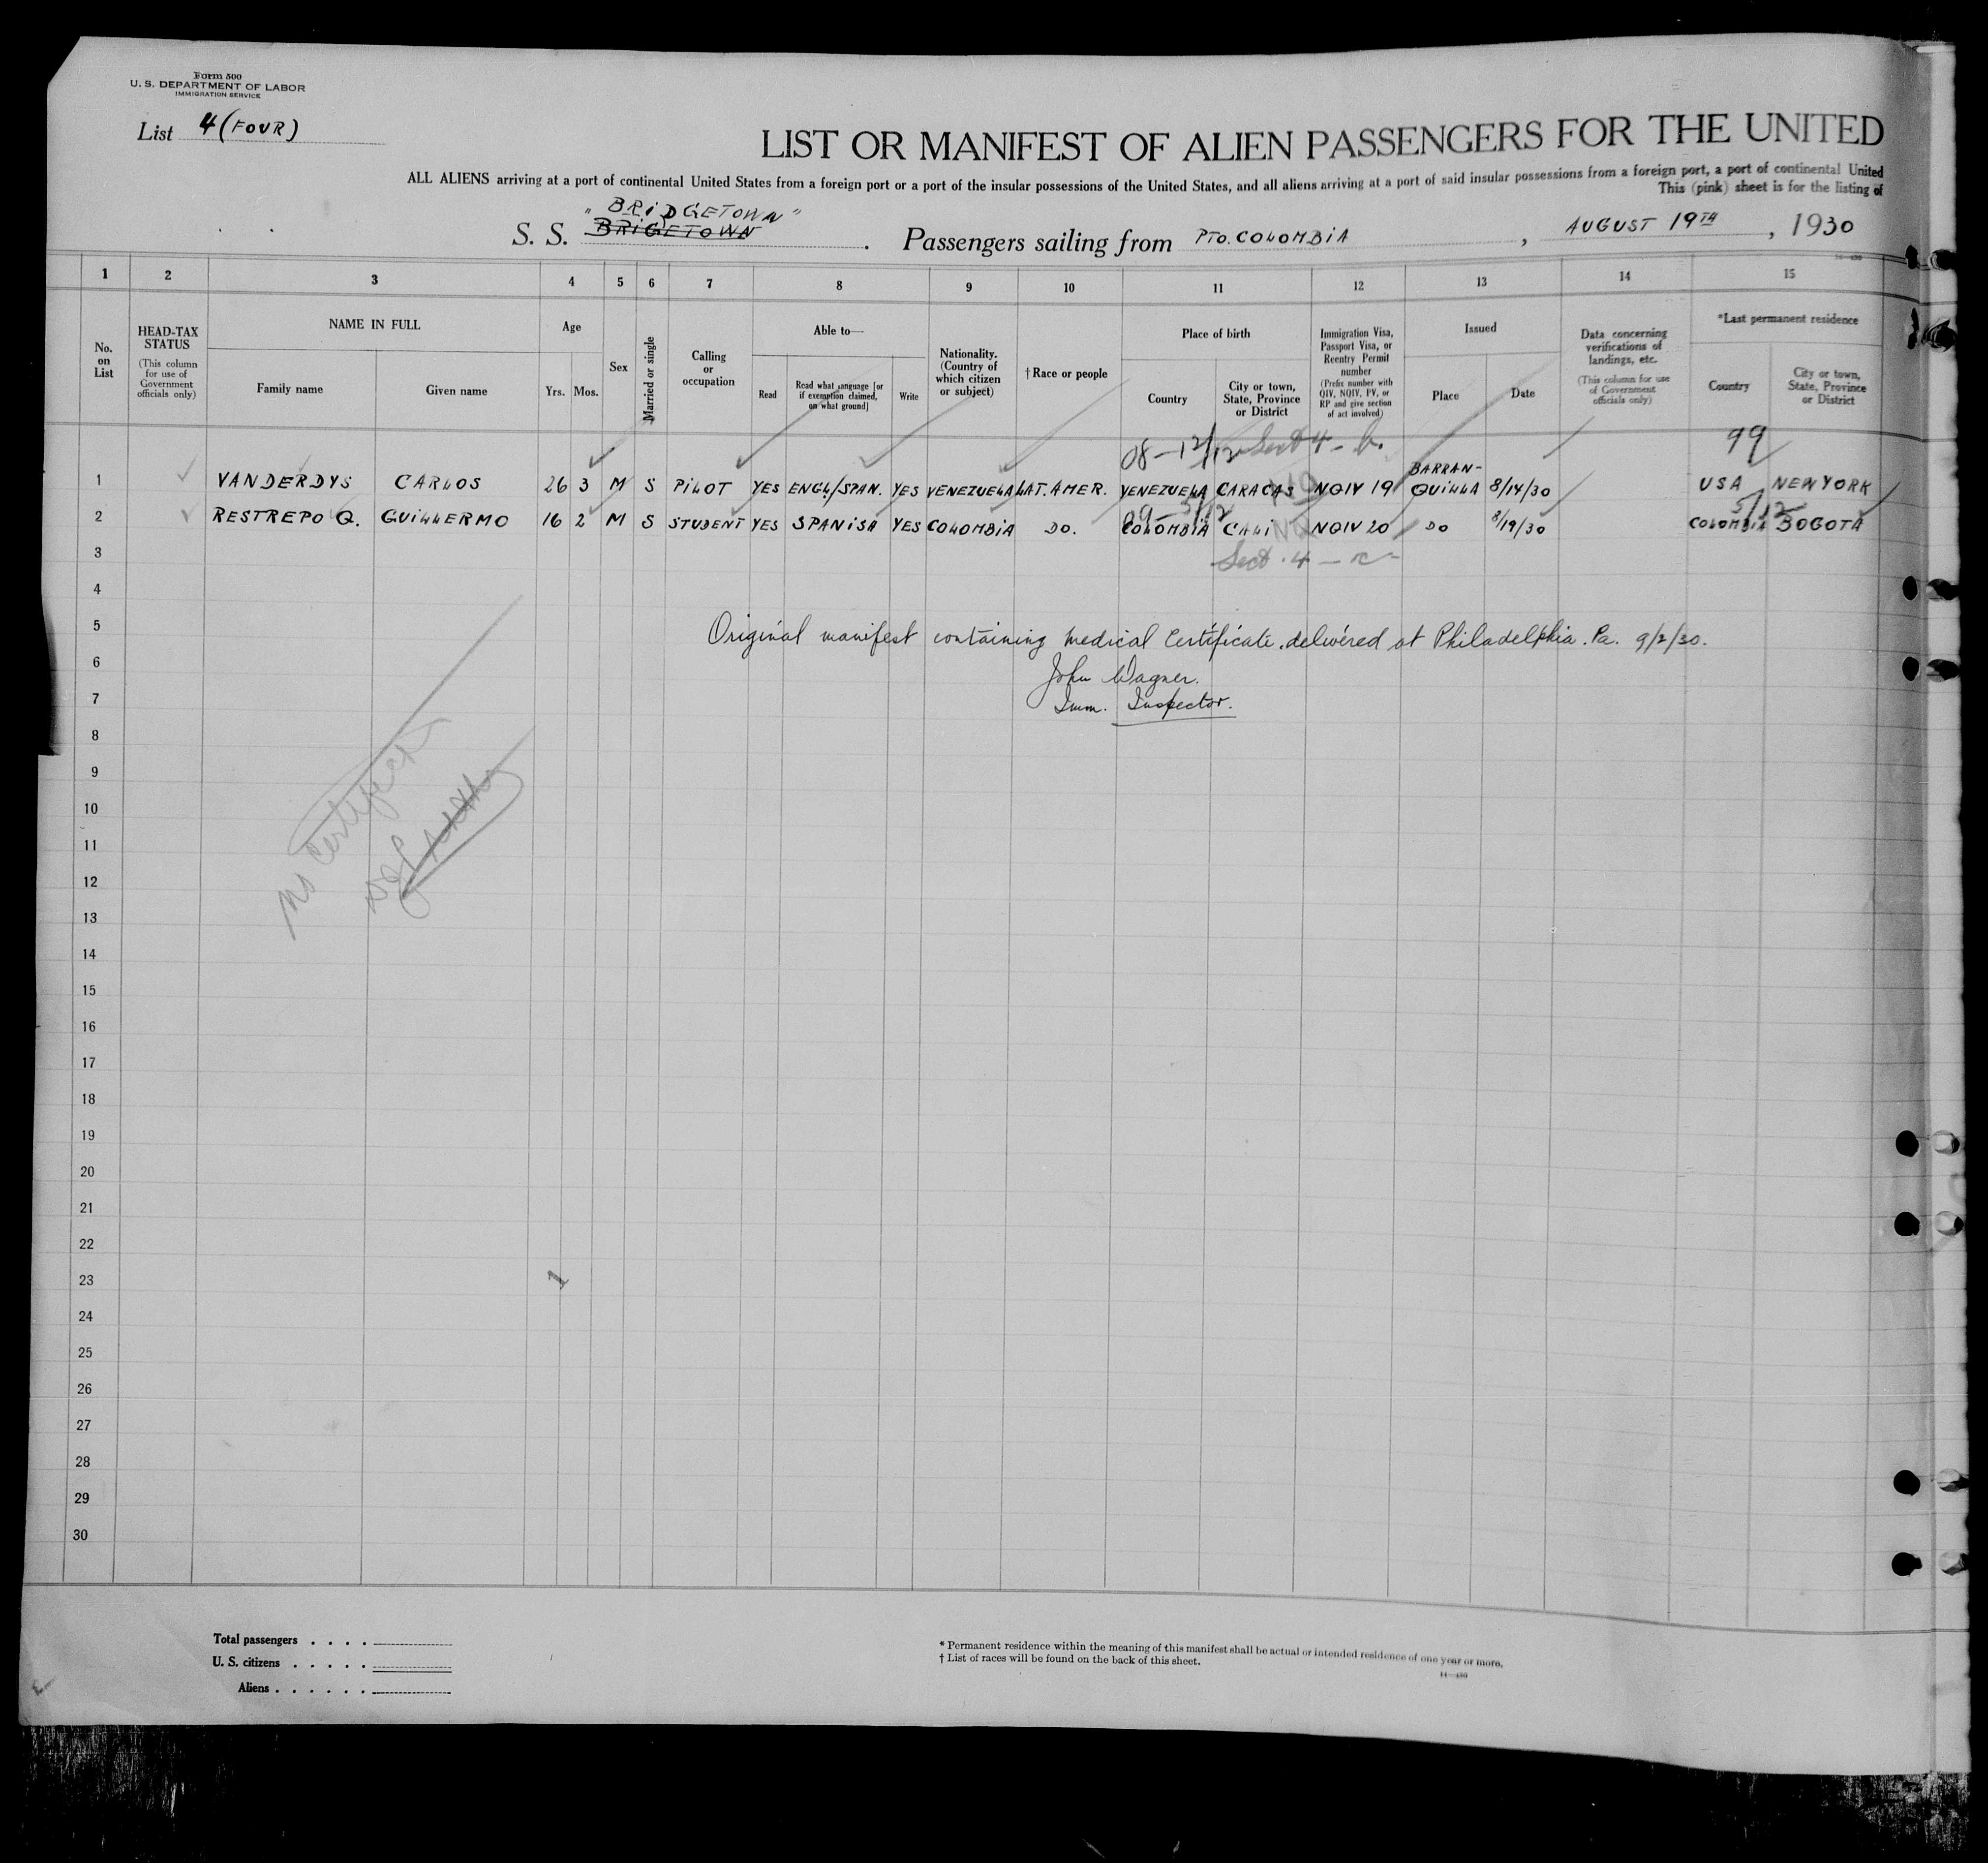 Form 500
U. S. DEPARTMENT OF LABOR
IMMIGRATION SERVICE
List 4 (FOUR)
LIST OR MANIFEST OF ALIEN PASSENGERS FOR THE UNITED
ALL ALIENS arriving at a port of continental United States from a foreign port or a port of the insular possessions of the United States, and all aliens arriving at a port of said insular possessions from a foreign port, a port of continental United
This (pink) sheet is for the listing of
"BRIDGETOWN"
S. S. BRIGETOWN . Passengers sailing from PTO. COLOMBIA , AUGUST 19TH , 1930
1 2 3 4 5 6 7 8 9 10 11 12 13 14 15
No. on List
HEAD-TAX STATUS
(This column for use of Government officials only)
NAME IN FULL
Family name Given name
Age
Yrs. Mos.
Sex
Married or single
Calling or occupation
Able to—
Read
Read what language [or if exemption claimed, on what ground]
Write
Nationality. (Country of which citizen or subject)
† Race or people
Place of birth
Country
City or town, State, Province or District
Immigration Visa, Passport Visa, or Reentry Permit number
(Prefix number with QIV, NQIV, PV, or RP and give section of act involved)
Issued
Place Date
Data concerning verifications of landings, etc.
(This column for use of Government officials only)
*Last permanent residence
Country
City or town, State, Province or District
08-12/12 Sect 4-b. 99
1 VANDERDYS CARLOS 26 3 M S PILOT YES ENGL/SPAN. YES VENEZUELA LAT. AMER. VENEZUELA CARACAS NQIV 19 BARRANQUILLA 8/14/30 USA NEW YORK
09-5/12 5/12
2 RESTREPO Q. GUILLERMO 16 2 M S STUDENT YES SPANISH YES COLOMBIA DO. COLOMBIA CALI NQIV 20 DO 8/19/30 COLOMBIA BOGOTA
3
Sect. 4
4
5
Original manifest containing medical Certificate delivered at Philadelphia. Pa. 9/2/30.
6
John Wagner.
7
Imm. Inspector.
8
9
10
No Certificate
11
12
13
14
15
16
17
18
19
20
21
22
23
1
24
25
26
27
28
29
30
Total passengers . . . .
U. S. citizens . . . . .
Aliens . . . . . .
* Permanent residence within the meaning of this manifest shall be actual or intended residence of one year or more.
† List of races will be found on the back of this sheet.